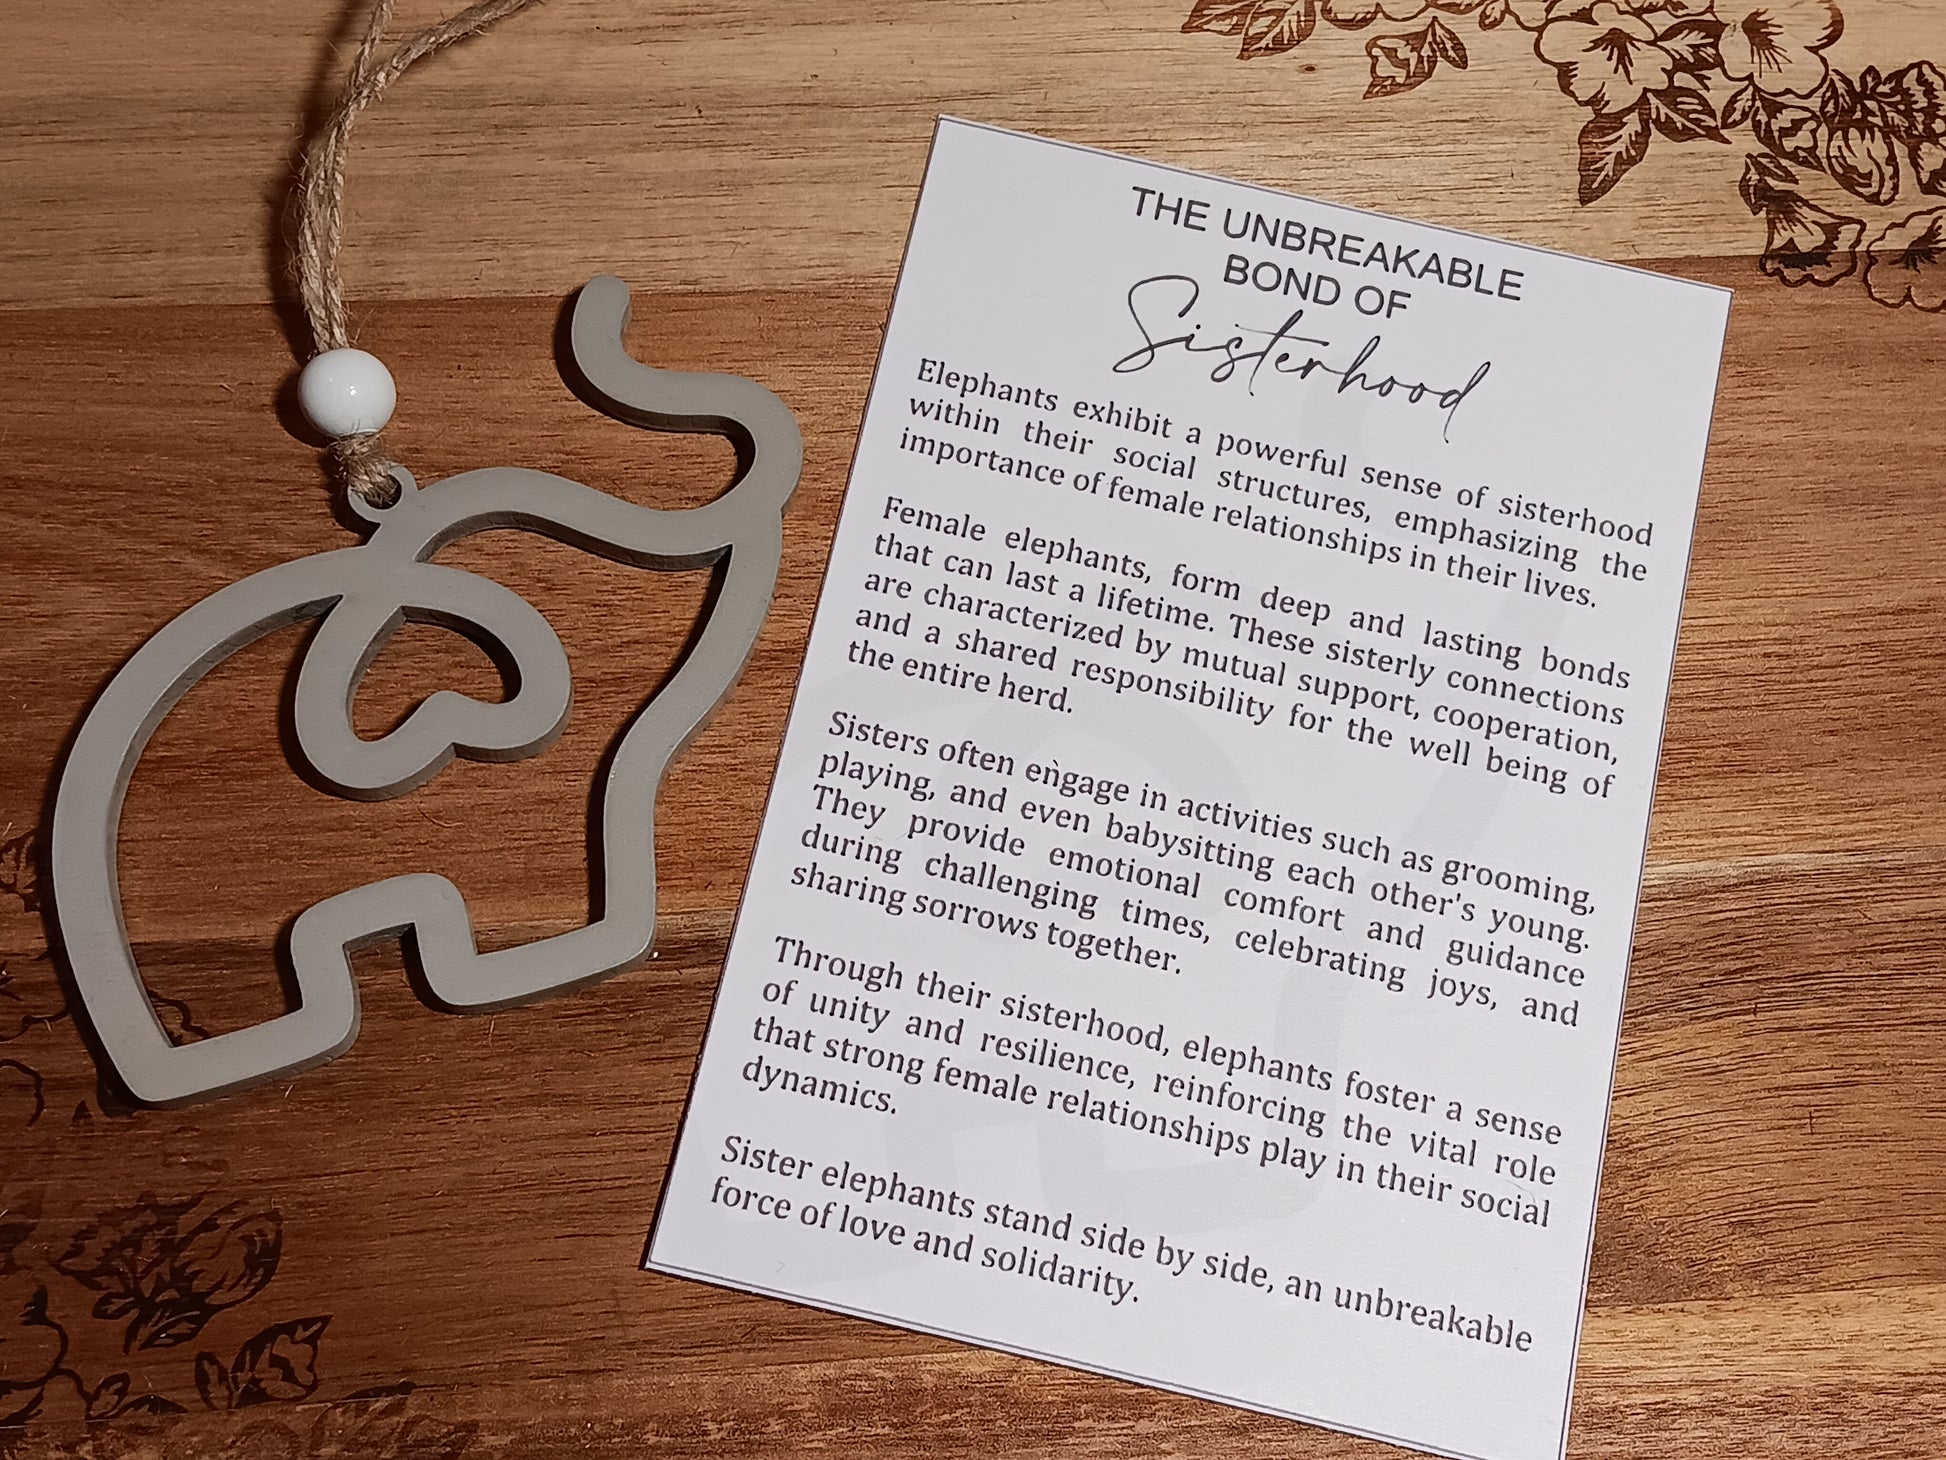 THE UNBREAKABLE
BOND OF
Sisterhood
Elephants exhibit a powerful sense of sisterhood
within their social structures, emphasizing the
importance of female relationships in their lives.
Female elephants, form deep and lasting bonds
that can last a lifetime. These sisterly connections
are characterized by mutual support, cooperation,
and a shared responsibility for the well being of
the entire herd.
Sisters often engage in activities such as grooming,
playing, and even babysitting each other's young.
They provide emotional comfort and guidance
during challenging times, celebrating joys, and
sharing sorrows together.
Through their sisterhood, elephants foster a sense
of unity and resilience, reinforcing the vital role
that strong female relationships play in their social
dynamics.
Sister elephants stand side by side, an unbreakable
force of love and solidarity.